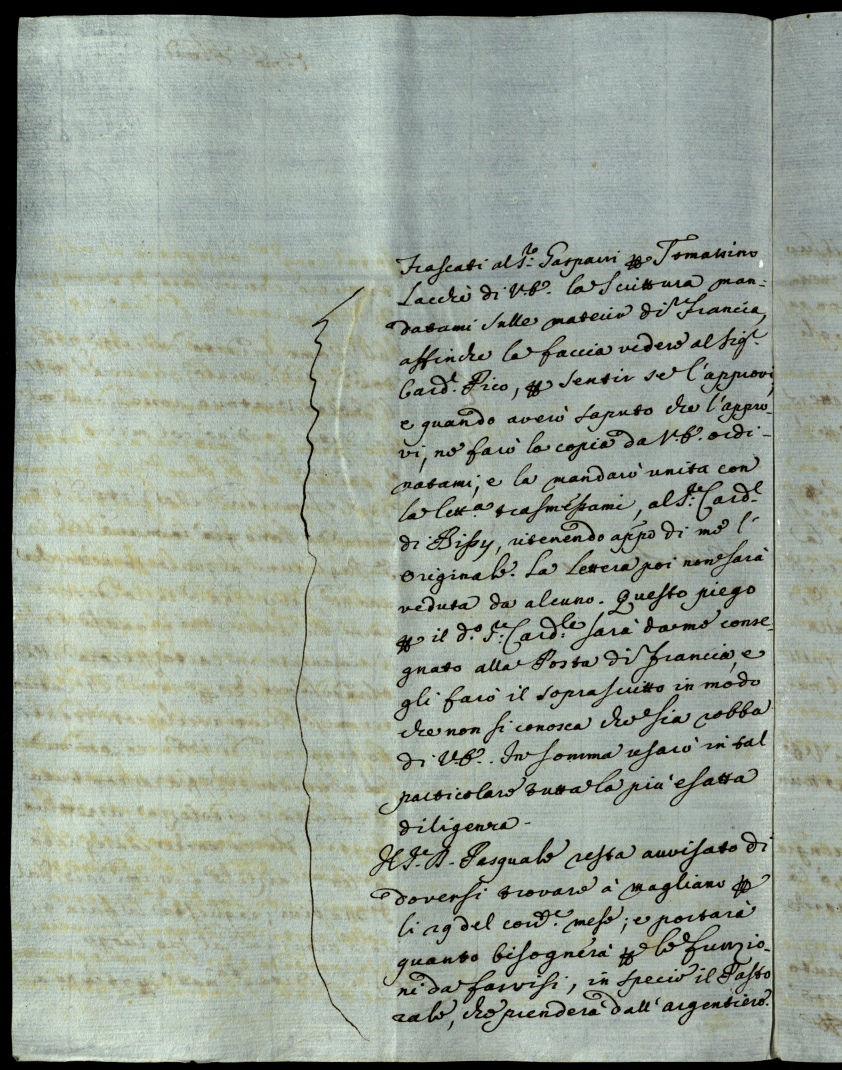 Frascati al S.re Gasparri per Tomassino
Lacchè di V.E. la Scrittura man-
datami sulle materie di Francia,
affinche la faccia vedere al Sig.re
Card.l Pico, per sentir se l'approvi,
e quando averò saputo che l'appro-
vi, ne farò la copia da V.E. ordi-
natami, e la mandarò unita con
la lett.a trasmessami, al S.re Card.l
di Bissy, ritenendo app.o di me l'
originale. La lettera poi non sarà
veduta da alcuno. Questo piego
per il d.o S.re Card.le sarà da me conse-
gnato alla Posta di Francia, e
gli farò il soprascritto in modo
che non si conosca che sia robba
di V.E. In somma usarò in tal
particolare tutta la più esatta
diligenza.
Il S.r D. Pasquale resta avvisato di
doversi trovare à Magliano per
li 29 del corr.e mese; e portarà
quanto bisognerà per le funzio-
ni da farvisi, in specie il Pasto-
rale, che prenderà dall'argentiere.